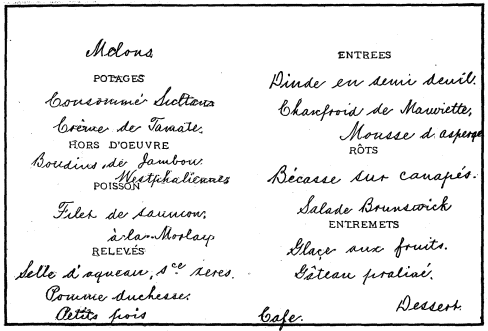 Melons
POTAGES
Consommé Sultana
Crème de Tamate.
HORS D'OEUVRE
Boudins de Jambon
Westphaliennes
POISSON
Filet de saumon,
à la Morlay
RELEVÉS
Selle d'agneau, sce seres.
Pomme duchesse.
Petits pois
ENTREES
Dinde en demi deuil.
Chanfroid de Mauviette,
Mousse d asperge
RÔTS
Bécasse sur canapés.
Salade Brunswick
ENTREMETS
Glaçe aux fruits.
Gâteau praliné.
Dessert.
Cafe.